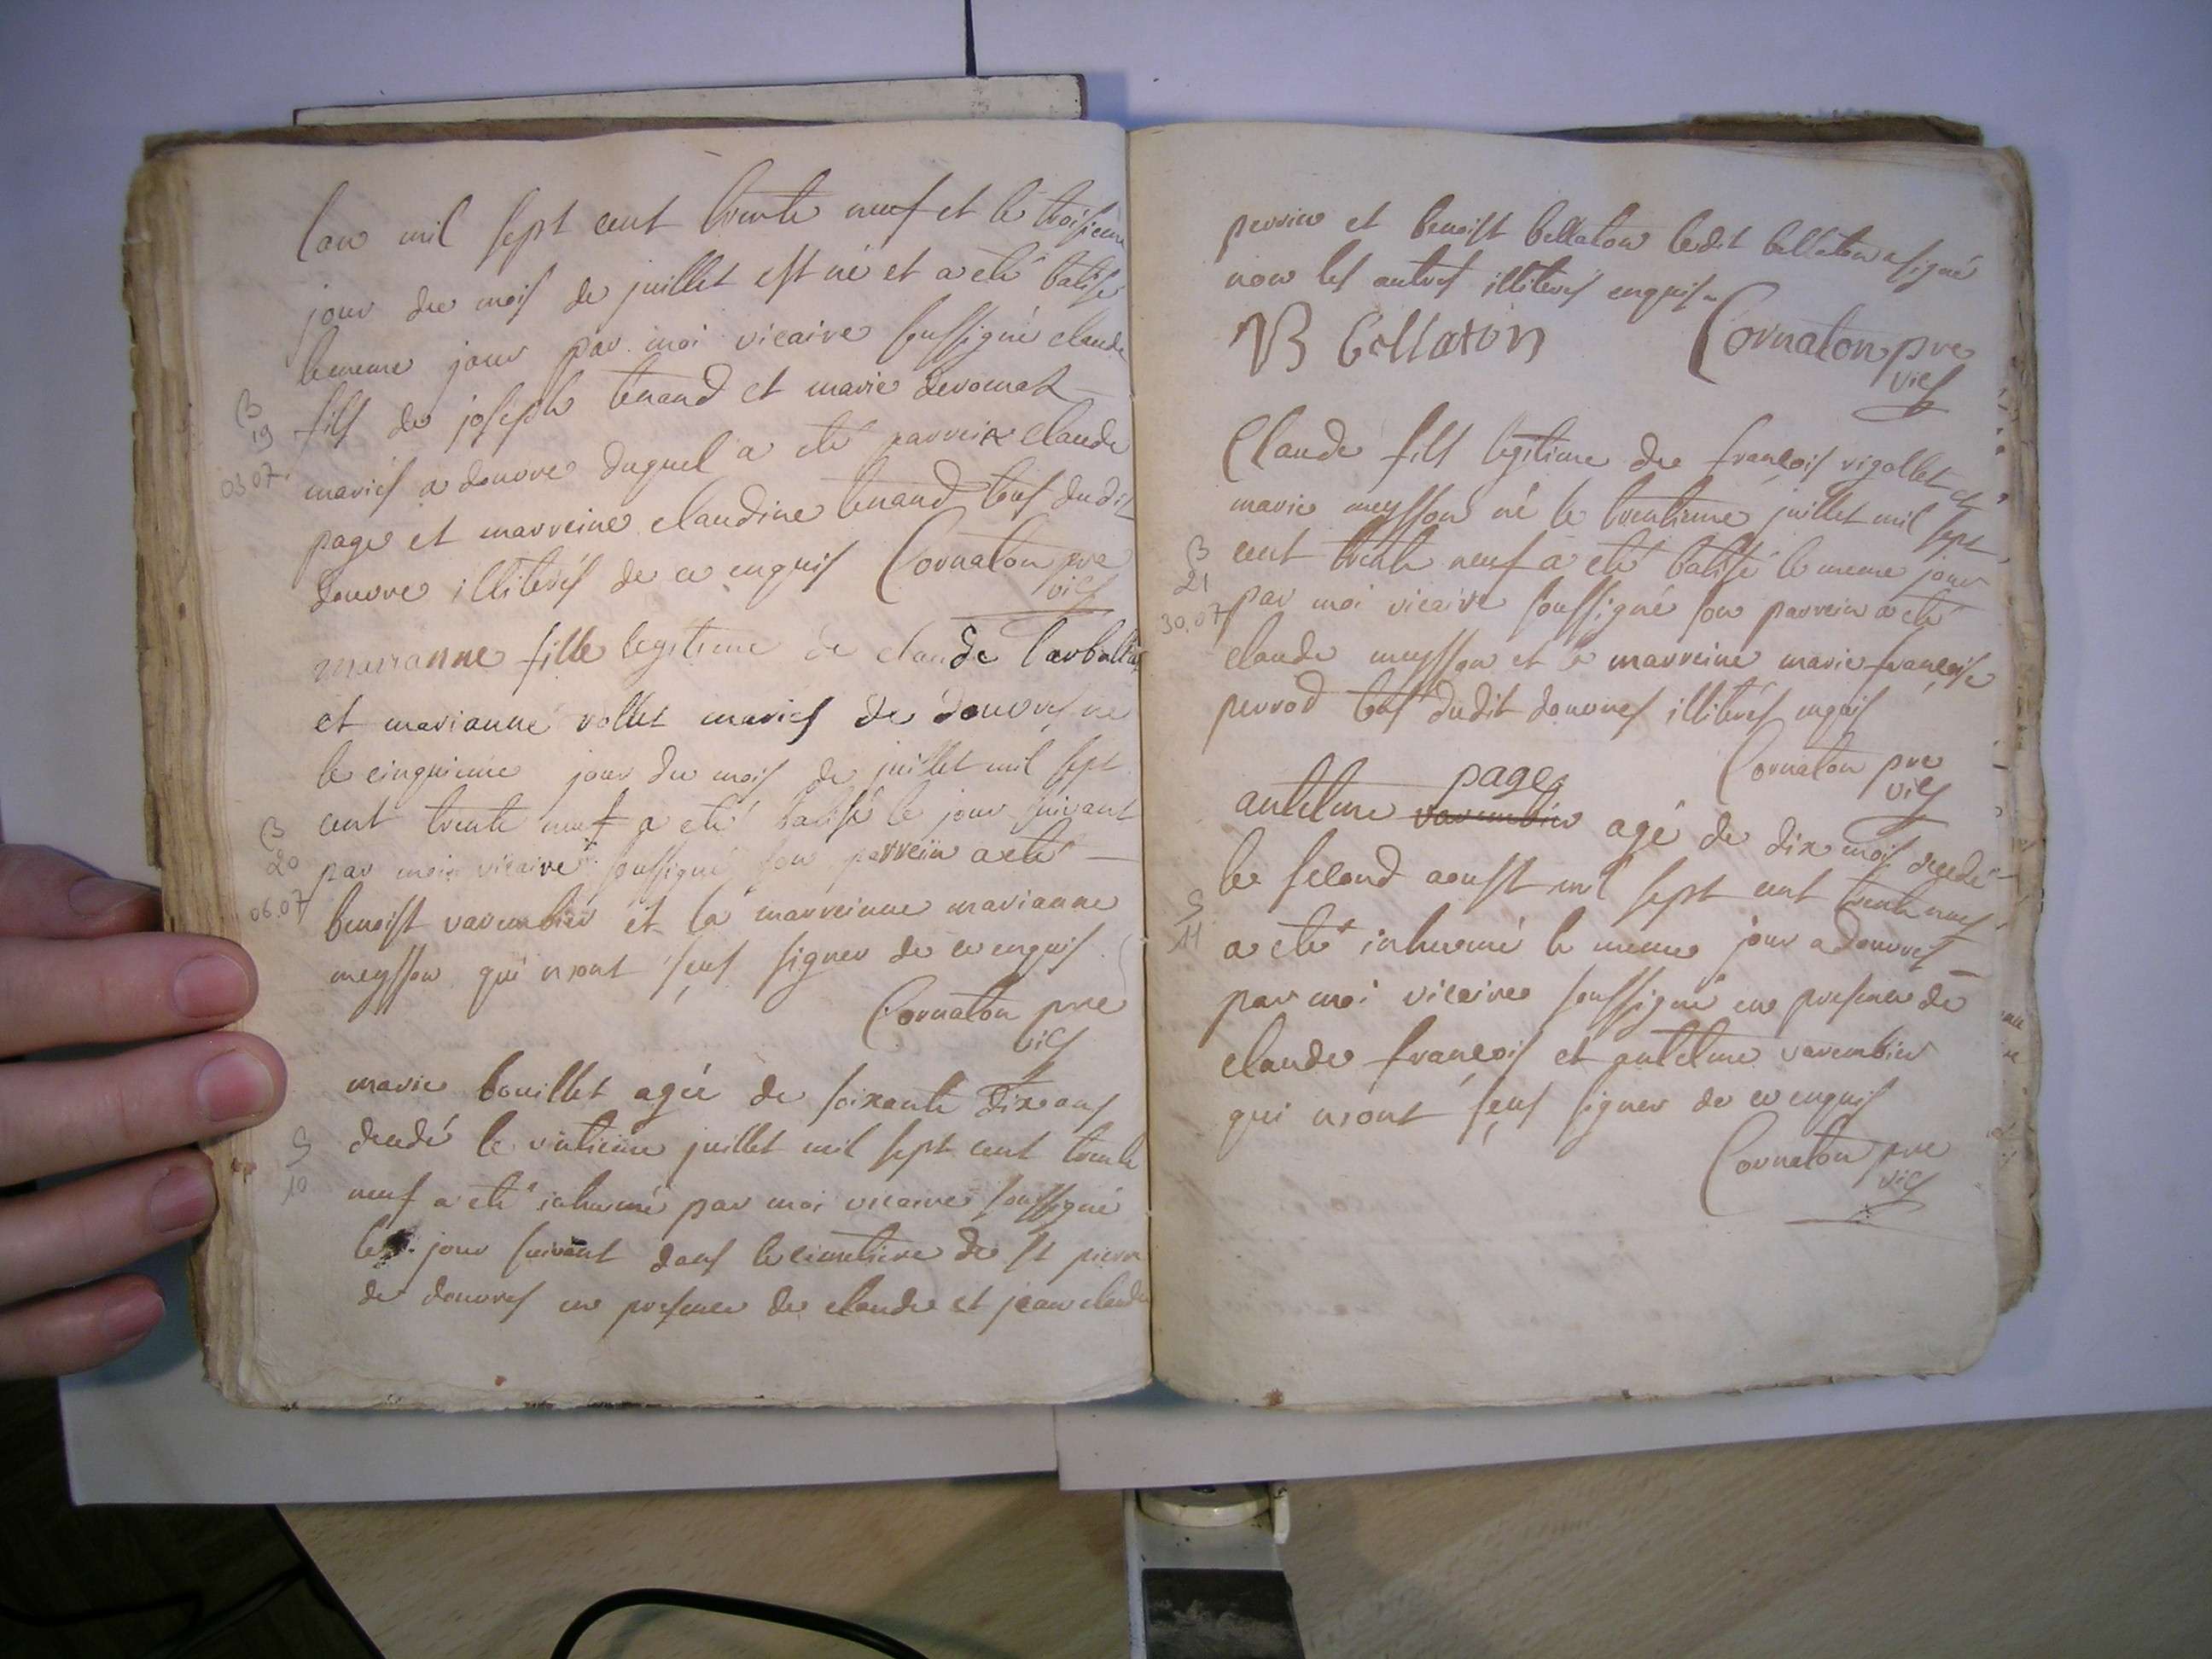 lan mil sept cent trente neuf et le troisieme
jour du mois de juillet est né et a eté batisé
le meme jour par moi vicaire soussigné claude
fils de joseph tenand et marie
B
19
03 07.
mariés a douvre duquel a eté parrein claude
page et marreine claudine tenand tous dudit
douvre illiterés de ce enquis Cornaton pre
vics
marianne fille legitime de claude larballet
et marianne vollet mariés de douvres né
le cinquieme jour du mois de juillet mil sept
cent trente neuf a eté batisé le jour suivant
B
20
06.07
par moi vicaire soussigné son parrein a eté
benoist varembier et la marreinne marianne
meysson qui nont sçus signer de ce enquis
Cornaton pre
vics
marie bouillet agée de soixante dix ans
decedé le vintieme juillet mil sept cent trente
S
10
neuf a eté inhumé par moi vicaire soussigné
le jour suivant dans le cimetiere de st pierre
de douvres en presence de claude et jean claude
perrin et benoist bellaton ledit bellaton a signé
non les autres illiterés enquis
B bellaton Cornaton pre
vics
Claude fils legitime de françois rigollet et
marie meysson né le trentieme juillet mil sept
B
21
30.07
cent trente neuf a eté batisé le meme jour
par moi vicaire soussigné son parrein a eté
claude meysson et la marreine marie françoise
perrod tous dudit douvres illiterés enquis
Cornaton pre
vics
page
antelme varembier agé de dix mois decedé
le second aoust mil sept cent trente neuf
S
11
a eté inhumé le meme jour a douvres
par moi vicaire soussigné en presence de
claude françois et antelme varembier
qui n'ont sçus signer de ce enquis
Cornaton pre
vics